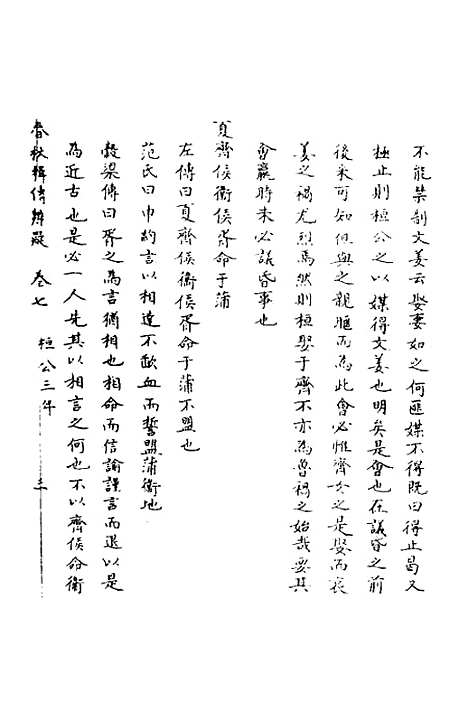 不能禁制文姜云娶妻如之何匪媒不得既曰得止曷又
極止則桓公之以媒得文姜也明矣是會也在議昏之前
後來可知但與之親暱而為此會必惟齊女之是娶而哀
姜之禍尤烈焉然則桓娶于齊不亦為魯禍之始哉要其
會嬴時未必議昏事也
夏齊侯衛侯胥命于蒲
左傳曰夏齊侯衛侯胥命于蒲不盟也
范氏曰申約言以相達不歃血而誓盟蒲衛地
穀梁傳曰胥之為言猶相也相命而信諭謹言而退以是
為近古也是必一人先其以相言之何也不以齊侯命衛
春秋輯傳辨疑 卷七 桓公三年 三